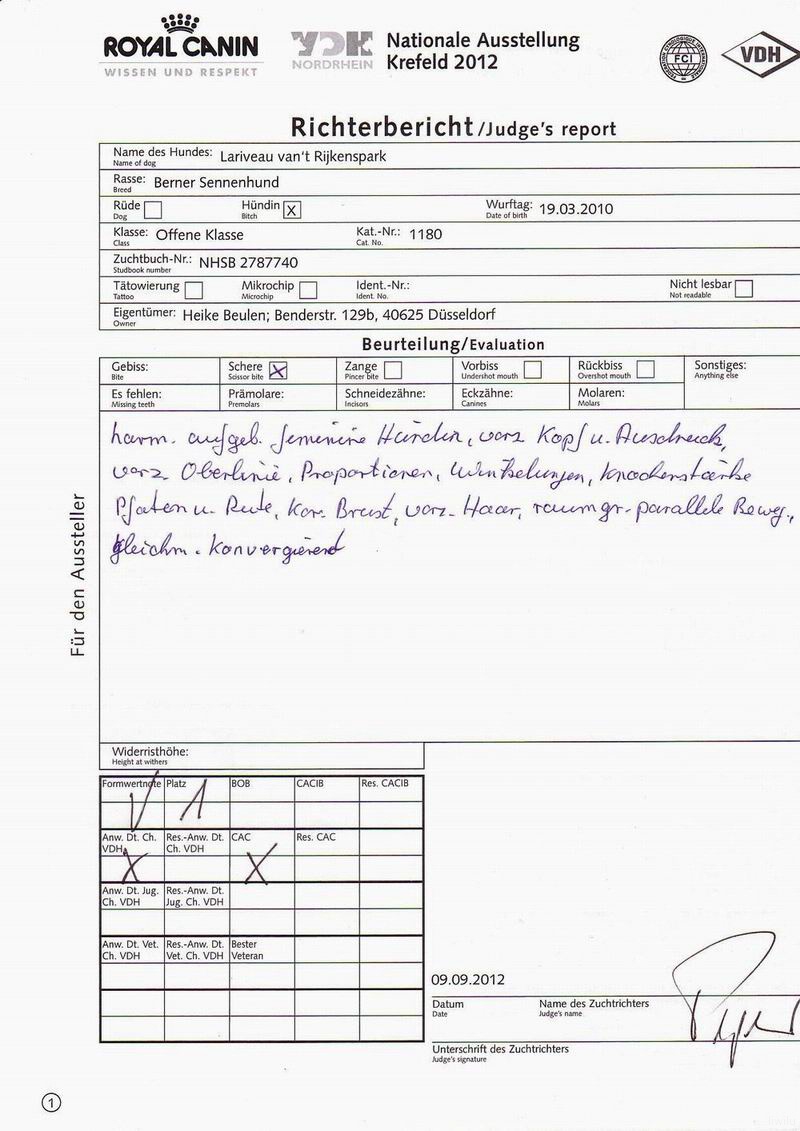 ROYAL CANIN
WISSEN UND RESPEKT
VDH
NORDRHEIN
Nationale Ausstellung
Krefeld 2012
FCI
VDH
Richterbericht/Judge's report
Name des Hundes: Lariveau van't Rijkenspark
Name of dog
Rasse: Berner Sennenhund
Breed
Rüde Hündin X Wurftag: 19.03.2010
Dog Bitch Date of birth
Klasse: Offene Klasse Kat.-Nr.: 1180
Class Cat. No.
Zuchtbuch-Nr.: NHSB 2787740
Studbook number
Tätowierung Mikrochip Ident.-Nr.: Nicht lesbar
Tattoo Microchip Ident. No. Not readable
Eigentümer: Heike Beulen; Benderstr. 129b, 40625 Düsseldorf
Owner
Beurteilung/Evaluation
Gebiss: Schere X Zange Vorbiss Rückbiss Sonstiges:
Bite Scissor bite Pincer bite Undershot mouth Overshot mouth Anything else
Es fehlen: Prämolare: Schneidezähne: Eckzähne: Molaren:
Missing teeth Premolars Incisors Canines Molars
harm. aufgeb. feminine Hündin, vorz Kopf u. Ausdruck,
vorz Oberlinie, Proportionen, Winkelungen, Knochenstärke
Pfoten u. Rute, Kor. Brust, vorz. Haar, raumgr. parallele Beweg.,
gleichm. Konvergierend
Für den Aussteller
Widerristhöhe:
Height at withers
Formwertnote Platz BOB CACIB Res. CACIB
V 1
Anw. Dt. Ch. Res.-Anw. Dt. CAC Res. CAC
VDH Ch. VDH
X X
Anw. Dt. Jug. Res.-Anw. Dt.
Ch. VDH Jug. Ch. VDH
Anw. Dt. Vet. Res.-Anw. Dt. Bester
Ch. VDH Vet. Ch. VDH Veteran
09.09.2012
Datum Name des Zuchtrichters
Date Judge's name
Unterschrift des Zuchtrichters
Judge's signature
1